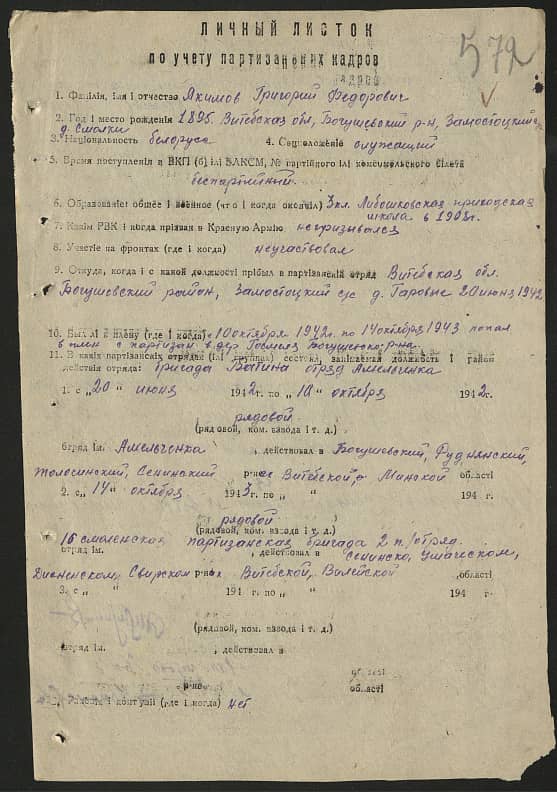 ЛИЧНЫЙ ЛИСТОК
по учету партизанских кадров
572
1. Фамілія, імя і отчество Акимов Григорий Федорович
2. Год і место рождения 1895. Витебская обл, Богушевский р-н, Замостоцкий с/с
д. Смолки
3. Національность белорус 4. Соцположение служащий
5. Время поступления в ВКП (б) ілі ВЛКСМ, № партійного ілі комсомольского білета
беспартийный
6. Образованіе: общее і военное (что і когда окончіл) 3 кл. Любошковская приходская
школа в 1908 г.
7. Какім РВК і когда прізван в Красную Армію непризывался
8. Участіе на фронтах (где і когда) неучаствовал
9. Откуда, когда і с какой должності прібыл в партізанскій отряд Витебская обл.
Богушевский район, Замостоцкий с/с д. Гаровые 20 июня 1942
10. Был лі в плену (где і когда) с 10 октября 1942 г. по 14 октября 1943 попал
в плен с партизан в дер Богушевско р-на.
11. В какіх партізанскіх отрядах (ілі группах) состоял, занімаемая должность і район
действія отряда: Бригада Ватина отряд Амельченка
1. с „20 " июня 1942 г. по „ 10 " октября 1942 г.
рядовой
(рядовой, ком. взвода і т. д.)
отряд ім. Амельченка , действовал в Богушевский, Руднянский,
Толосинский, Сенинский р-нах Витебской, Минской області
2. с „14 " октября 1943 г. по „ " 194 г.
рядовой
(рядовой, ком. взвода і т. д.)
16 смоленская партизанская бригада 2 п./отряд
отряд ім. , действовал в Сенинско, Ушачском,
Дисненском, Свирском р-нах Витебской, Вилейской області
3. с „ " 194 г. по „ " 194 г.
(рядовой, ком. взвода і т. д.)
отряд ім. , действовал в
р-нах області
Раненія і контузіі (где і когда) нет